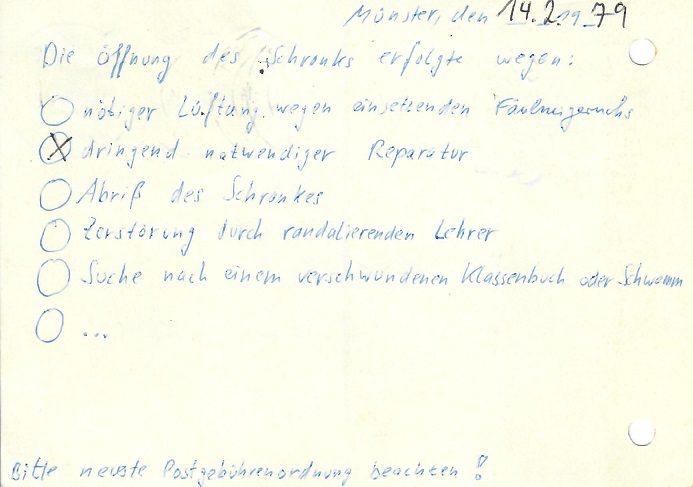 Münster, den 14.2.1979
Die Öffnung des Schranks erfolgte wegen:
nötiger Lüftung wegen einsetzenden Fäulnisgeruchs
X dringend notwendiger Reparatur
Abriß des Schrankes
Zerstörung durch randalierenden Lehrer
Suche nach einem verschwundenen Klassenbuch oder Schwamm
...
Bitte neuste Postgebührenordnung beachten!